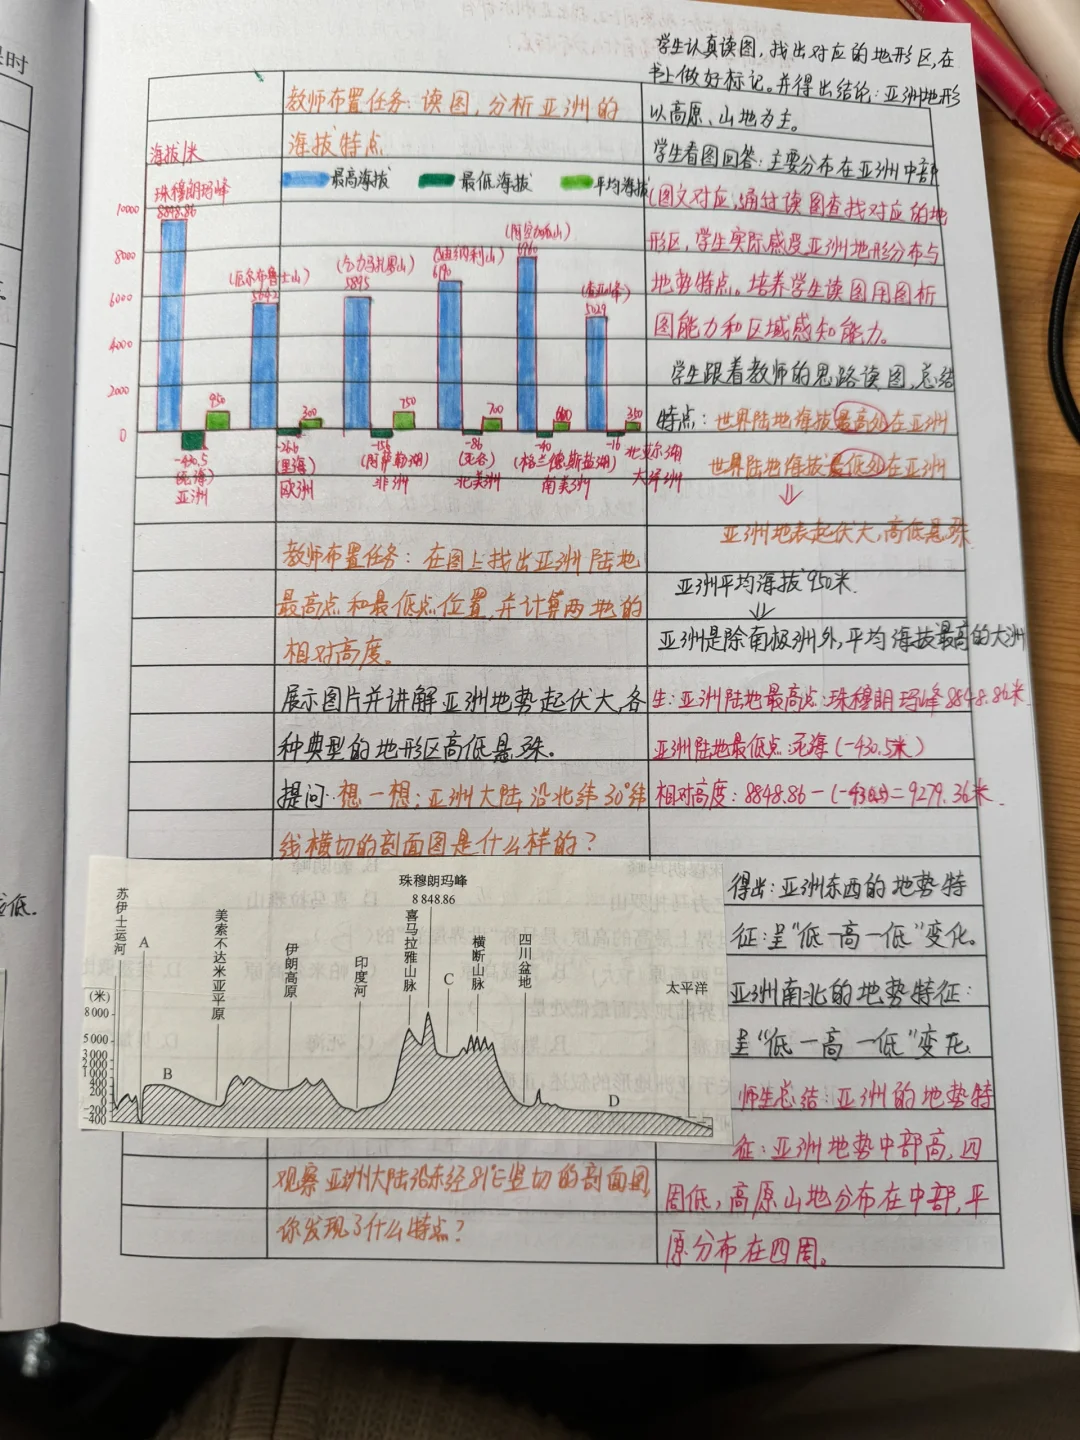 课时
学生认真读图，找出对应的地形区，在
书上做好标记。并得出结论：亚洲地形
以高原、山地为主。
学生看图回答：主要分布在亚洲中部
(图文对应，通过读图查找对应的地
形区，学生实际感受亚洲地形分布与
地势特点。培养学生读图用图析
图能力和区域感知能力。
学生跟着教师的思路读图，总结
特点：世界陆地海拔最高处在亚洲
世界陆地海拔最低处在亚洲
亚洲地表起伏大，高低悬殊
亚洲平均海拔950米.
亚洲是除南极洲外，平均海拔最高的大洲
教师布置任务：读图，分析亚洲的
海拔特点
海拔/米
最高海拔 最低海拔 平均海拔
珠穆朗玛峰
8848.86
(厄尔布鲁士山)
5642
(乞力马扎罗山)
5895
6190
6960
(查亚峰)
5029
10000
8000
6000
4000
2000
0
950 300 750 700 600 350
-430.5
(死海)
亚洲
-28
(里海)
欧洲
-156
(阿萨勒湖)
非洲
-86
(死谷)
北美洲
-40
(格兰德斯盐湖)
南美洲
-16
北艾尔湖
大洋洲
教师布置任务：在图上找出亚洲陆地
最高点和最低点位置，并计算两地的
相对高度。
展示图片并讲解亚洲地势起伏大，各
种典型的地形区高低悬殊。
提问：想一想：亚洲大陆沿北纬30°纬
线横切的剖面图是什么样的？
生：亚洲陆地最高点：珠穆朗玛峰8848.86米
亚洲陆地最低点：死海(-430.5米)
相对高度：8848.86-(-430.5)=9279.36米.
苏伊士运河
A
美索不达米亚平原
伊朗高原
印度河
喜马拉雅山脉
珠穆朗玛峰
8 848.86
C
横断山脉
四川盆地
太平洋
(米)
8 000
5 000
3 000
2 000
1 000
400
200
0
-200
-400
B
D
得出：亚洲东西的地势特
征：呈“低一高一低”变化。
亚洲南北的地势特征：
呈“低一高一低”变化.
师生总结：亚洲的地势特
征：亚洲地势中部高，四
周低，高原山地分布在中部，平
原分布在四周。
观察亚洲大陆沿东经81°E竖切的剖面图，
你发现了什么特点？
低.